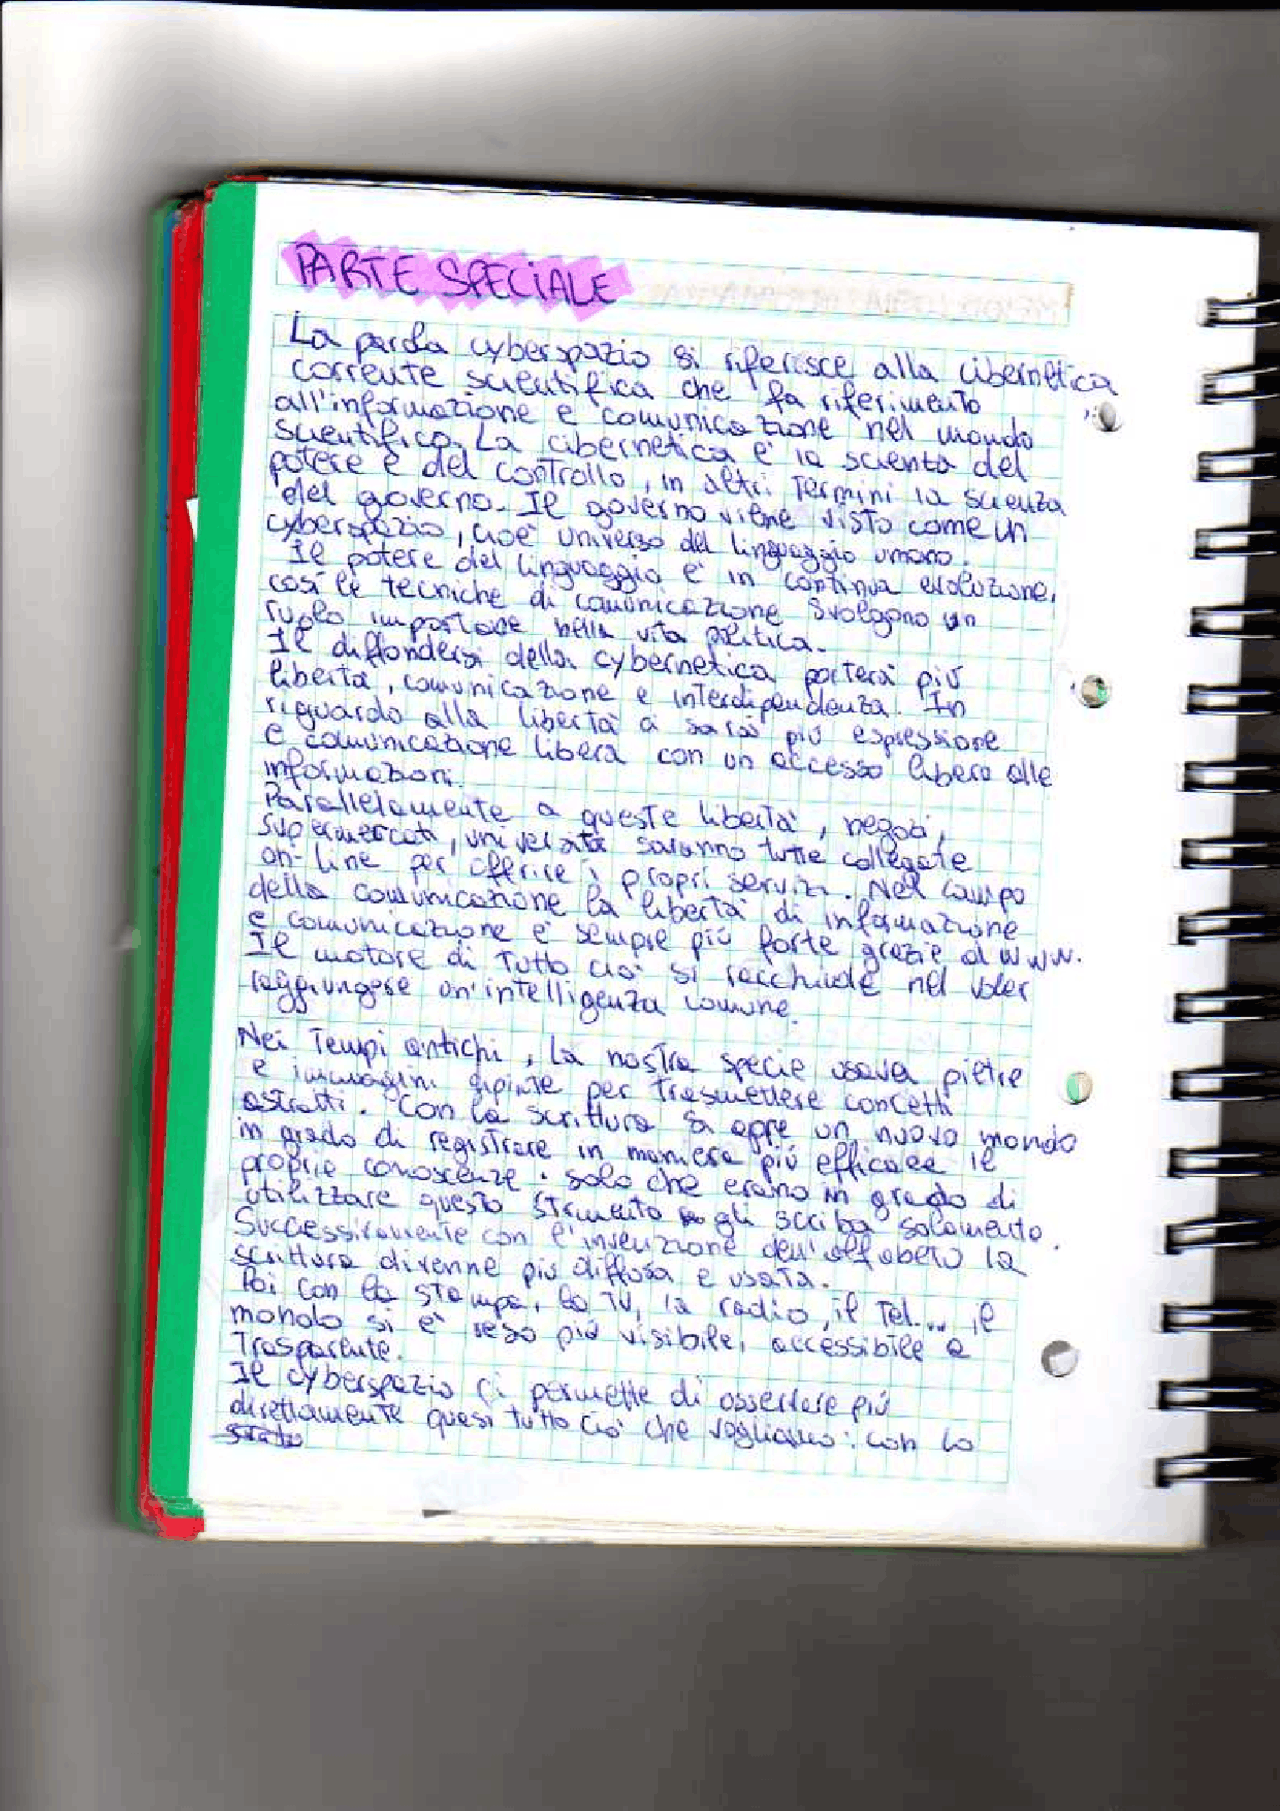 PARTE SPECIALE
La parola cyberspazio si riferisce alla cibernetica
corrente scientifica che fa riferimento
all'informazione e comunicazione nel mondo
scientifico. La cibernetica è la scienta del
potere e del controllo, in altri termini la scienza
del governo. Il governo viene visto come un
cyberspazio, cioè universo del linguaggio umano.
Il potere del linguaggio è in continua evoluzione,
così le tecniche di comunicazione svolgono un
ruolo importante nella vita politica.
Il diffondersi della cybernetica porterà più
libertà, comunicazione e interdipendenza. In
riguardo alla libertà ci sarà più espressione
e comunicazione libera con un accesso libero alle
informazioni.
Parallelamente a queste libertà, negozi,
supermercati, università saranno tutte collegate
on-line per offrire i propri servizi. Nel campo
della comunicazione la libertà di informazione
e comunicazione è sempre più forte grazie al WWW.
Il motore di tutto ciò si racchiude nel voler
raggiungere un'intelligenza comune.
Nei tempi antichi, la nostra specie usava pietre
e immagini dipinte per trasmettere concetti
astratti. Con la scrittura si apre un nuovo mondo
in grado di registrare in maniera più efficace le
proprie conoscenze. solo che erano in grado di
utilizzare questo strumento gli scriba solamento.
Successivamente con l'invenzione dell'alfabeto la
scrittura divenne più diffusa e usata.
Poi con la stampa, la TV, la radio, il tel... il
mondo si è reso più visibile, accessibile e
trasparente.
Il cyberspazio ci permette di osservare più
direttamente quasi tutto ciò che vogliamo: con lo